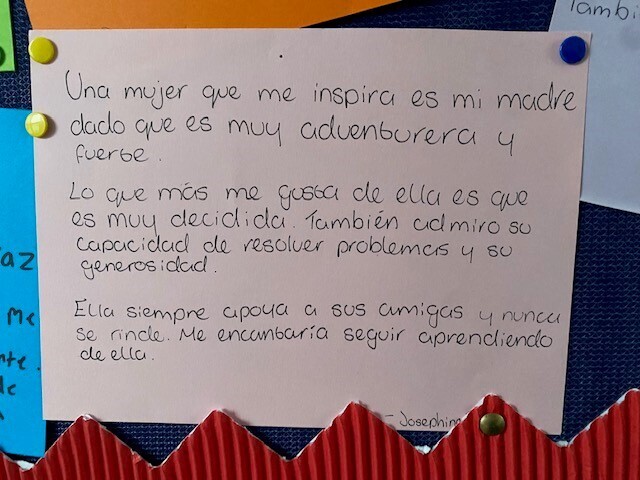 Una mujer que me inspira es mi madre
dado que es muy adventurera y
fuerte.
Lo que más me gusta de ella es que
es muy decidida. También admiro su
capacidad de resolver problemas y su
generosidad.
Ella siempre apoya a sus amigas y nunca
se rinde. Me encantaría seguir aprendiendo
de ella.
Me